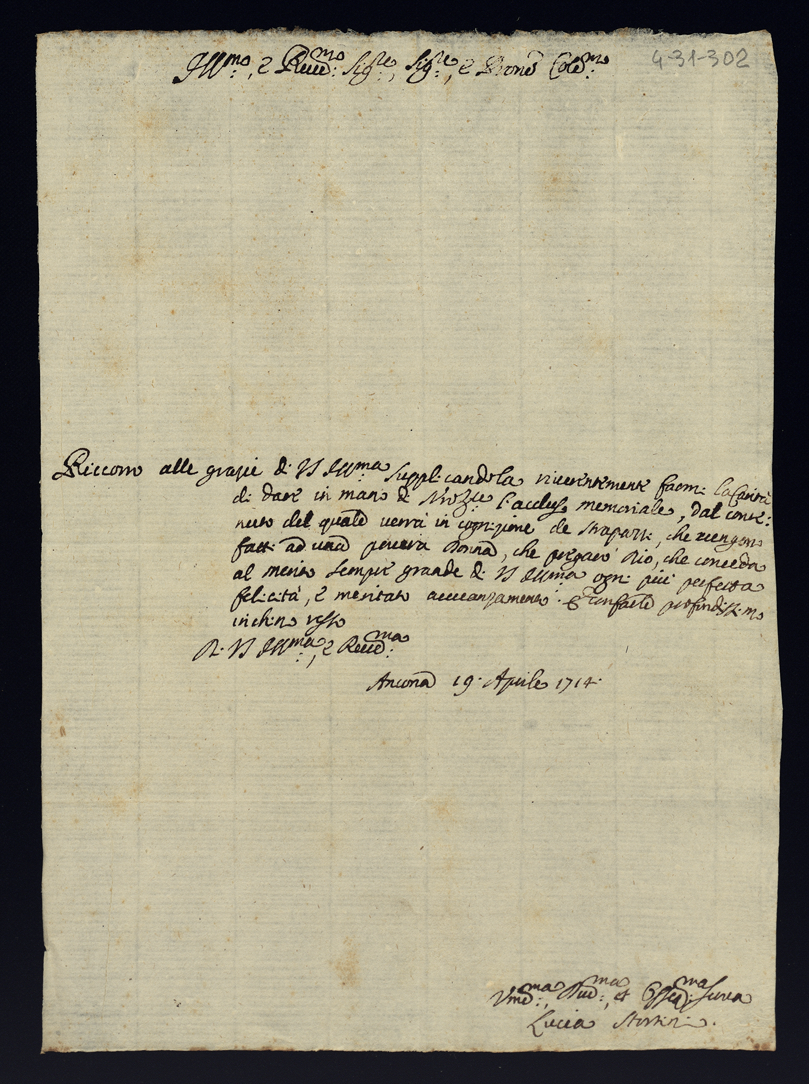 4-31-302
Ill:mo, e Reud:mo Sig:re, Sig:re, e Prone Col:mo
Riccorro alle grazie di VS Ill:ma supplicandola riverentemente farmi la Carità
di dare in mano di l'accluso memoriale, dal conte:
nuto del quale verrà in cognizione de strapazzi, che vengono
fatti ad una povera Donna, che pregarò Dio, che conceda
al merito sempre grande di VS Ill:ma ogni più perfetta
felicità, e meritato avvanzamento. E con farle profondissimo
inchino resto
Di VS Ill:ma, e Reud:ma
Ancona 19. Aprile 1714.
Vm:ma, Diu:ma, et Osseq:ma Serva
Lucia